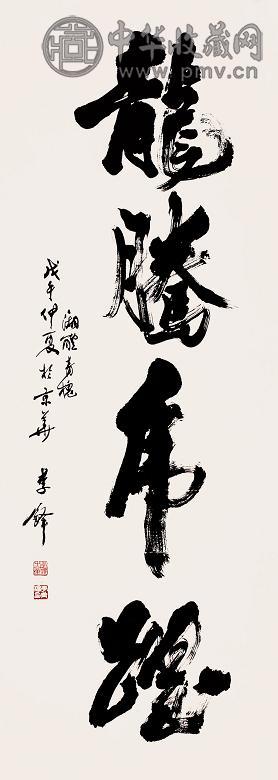 中华收藏网
www.pmv.cn
龍騰虎躍
湘醴秀槐
戊午仲夏於京華 李鐸